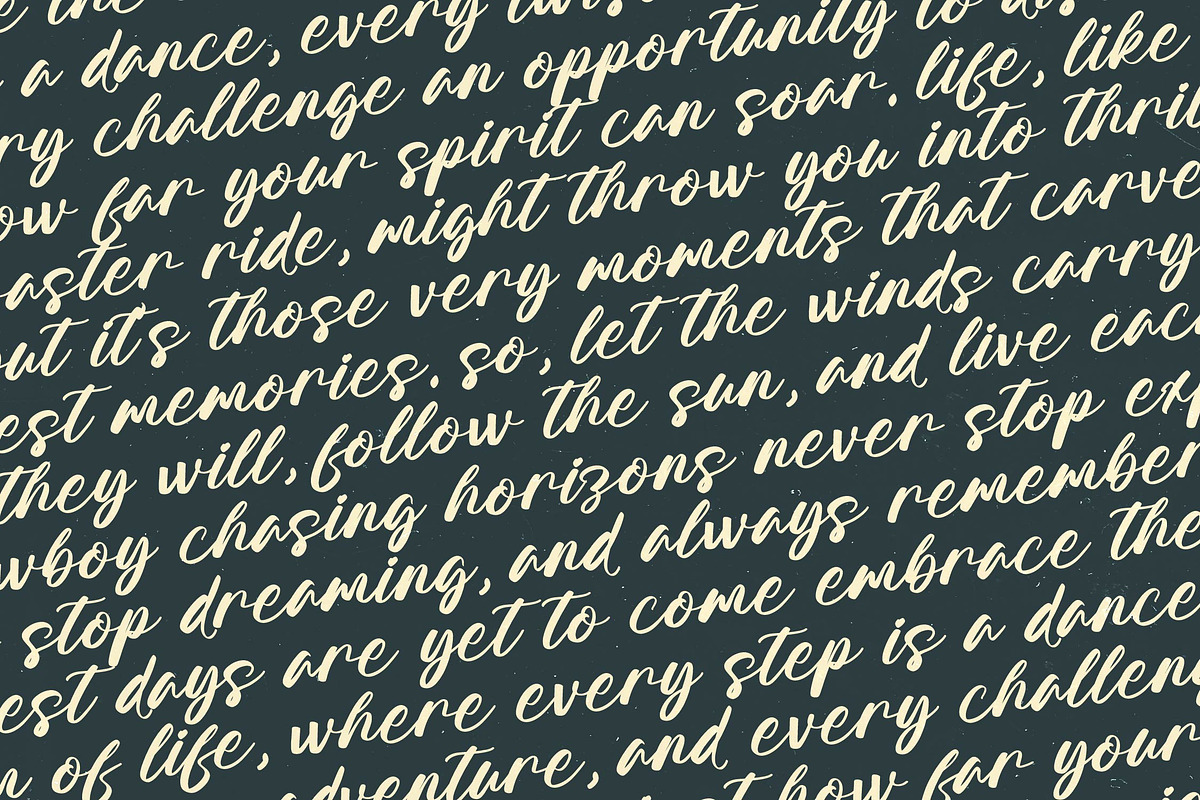 the
a dance, every twis
ry challenge an opportunity to dis
ow far your spirit can soar. life, like
aster ride, might throw you into thril
out it's those very moments that carve
est memories. so, let the winds carry
they will, follow the sun, and live eac
wboy chasing horizons never stop exp
stop dreaming, and always remember
est days are yet to come embrace the
n of life, where every step is a dance
dventure, and every challen
t how far your